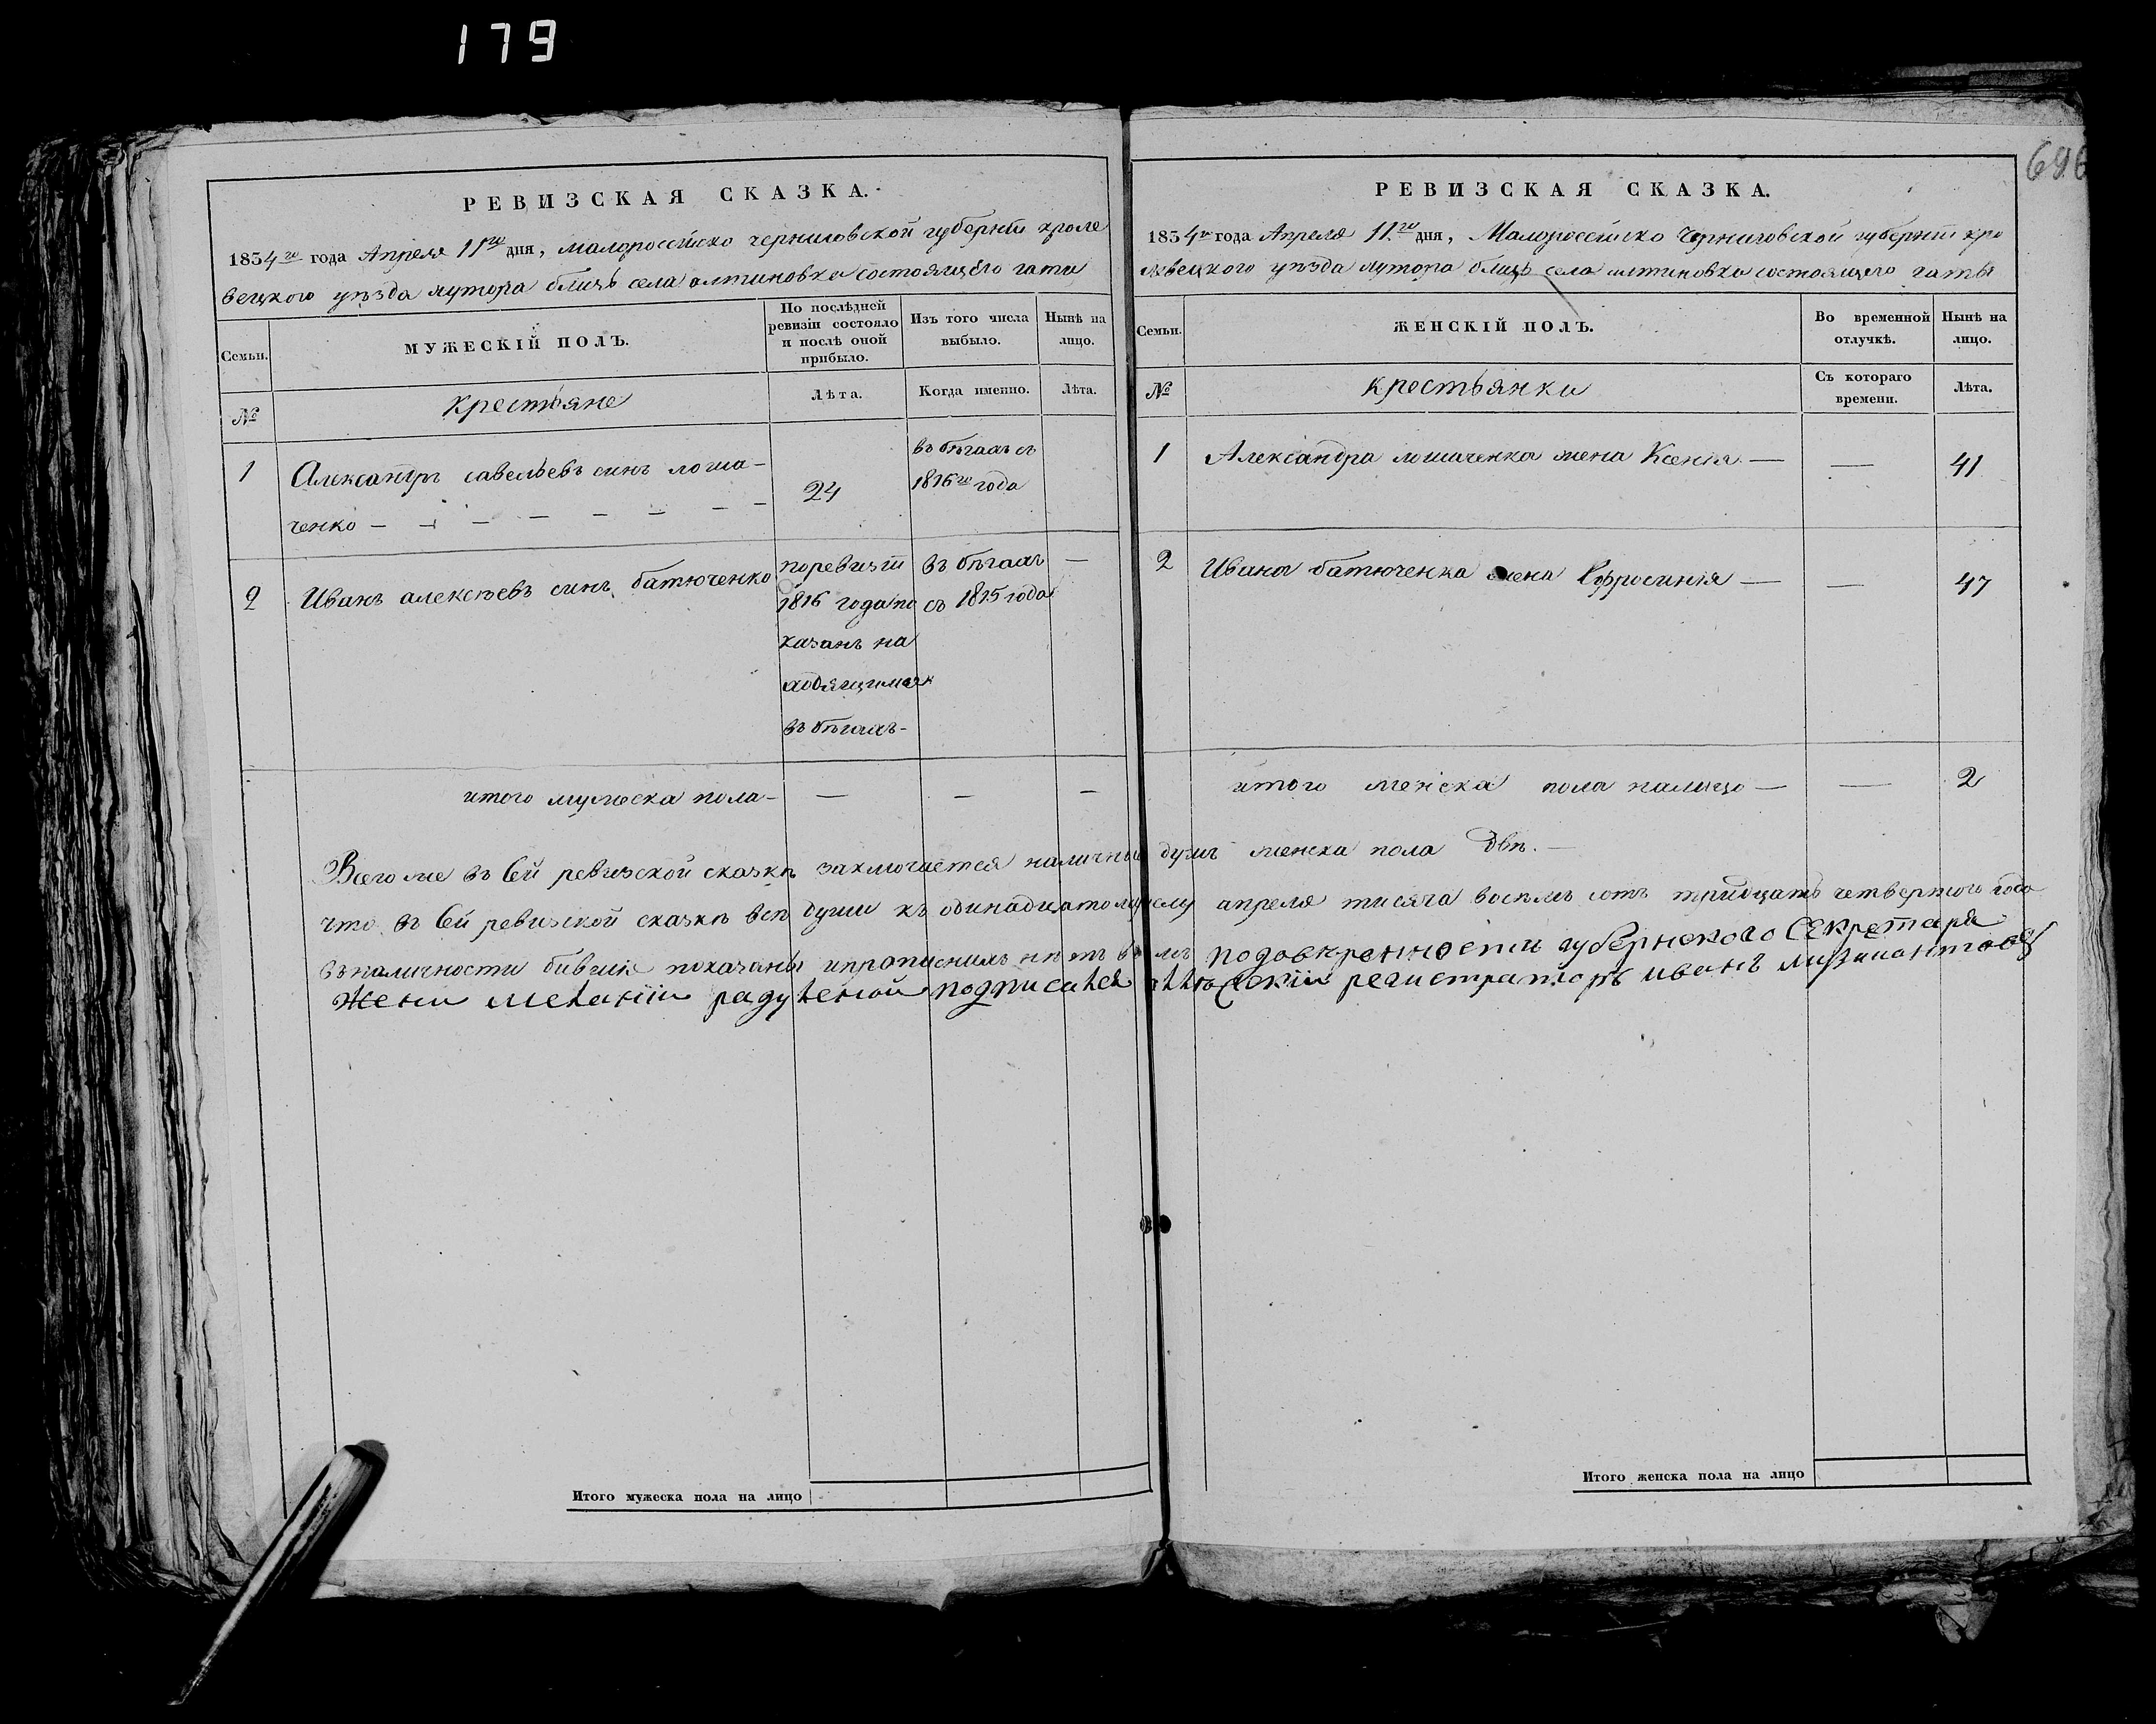 179
696
РЕВИЗСКАЯ СКАЗКА.
1834го года Апреля 11го дня, малороссійско черниговской губерніи кроле
вецкого уѣзда хутора близъ села алтиновки состоящего гати
Семьи.
МУЖЕСКІЙ ПОЛЪ.
По послѣдней ревизіи состояло и послѣ оной прибыло.
Изъ того числа выбыло.
Нынѣ на лицо.
№
крестьяне
Лѣта.
Когда именно.
Лѣта.
1
Александръ савельевъ синъ лоша-
ченко
24
въ бѣгахъ съ
1816го года
2
Иванъ алексѣевъ синъ батюченко
поревизіи
1816 года по
казанъ на
ходящимся
въ бѣгахъ-
въ бѣгахъ
съ 1815 года
—
итого мужеска пола-
—
—
—
РЕВИЗСКАЯ СКАЗКА.
1834го года Апреля 11го дня, Малороссійско Черниговской губерніи кро
левецкого уѣзда хутора близъ села алтиновки состоящего гаты
Семьи.
ЖЕНСКІЙ ПОЛЪ.
Во временной отлучкѣ.
Нынѣ на лицо.
№
крестьянки
Съ котораго времени.
Лѣта.
1
Александра лошаченка жена Ксенія —
—
41
2
Ивана батюченка жена Ефросинія —
—
47
итого женска пола налицо —
—
2
Всего же въ сей ревизской сказкѣ заключается наличныхъ душъ женска пола двѣ. —
что въ сей ревизской сказкѣ всѣ души къ одинадцатому числу апреля тисяча восемь сотъ тридцать четвертого года
въ наличности бившіе показаны и прописнихъ нѣтъ въ томъ по довѣренности губернского Секретаря
жени меланіи подписался регистраторъ иванъ
Итого мужеска пола на лицо
Итого женска пола на лицо